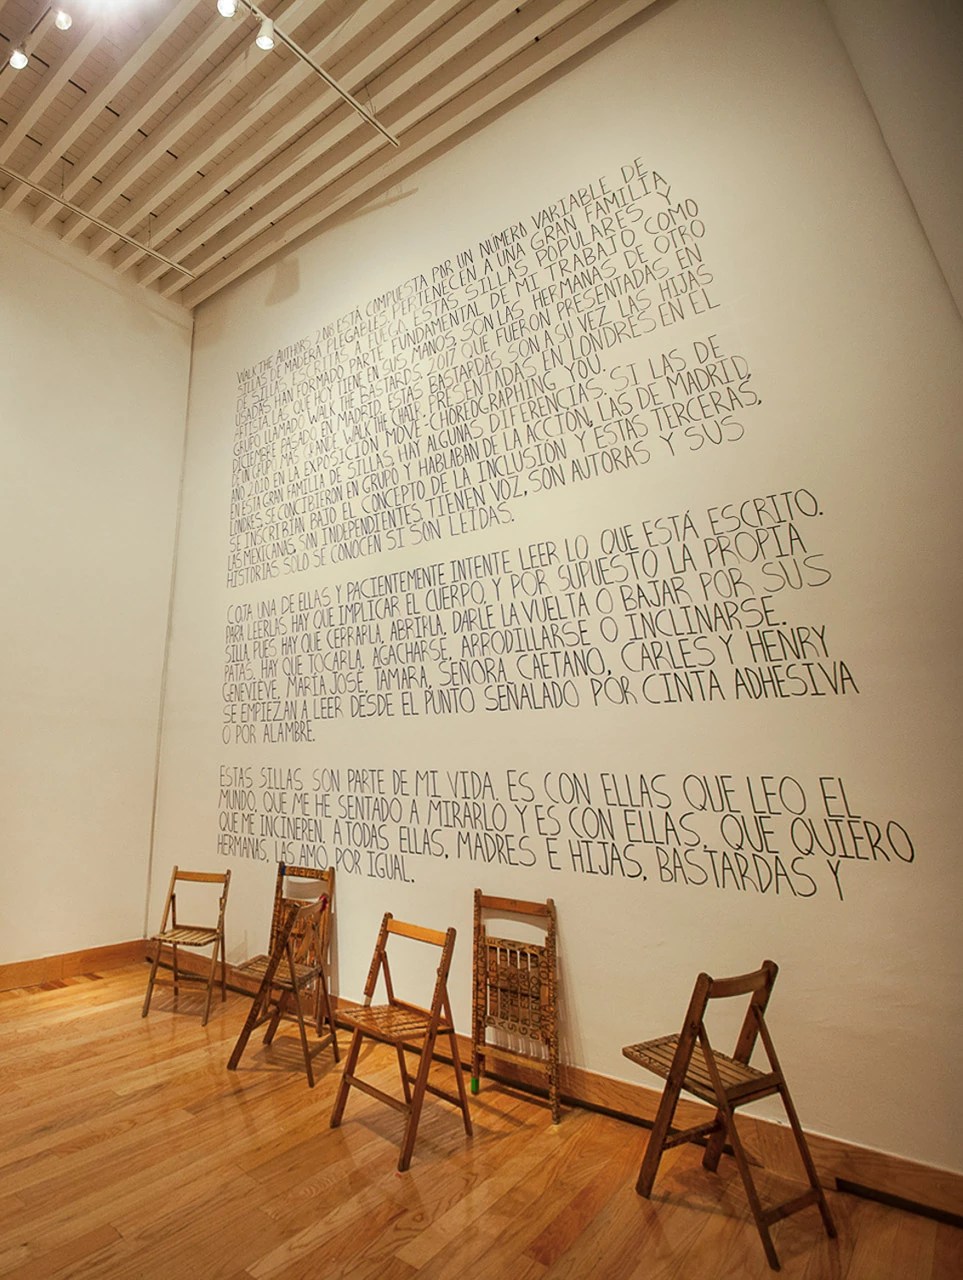 WALK THE AUTHORS, 2018 ESTÁ COMPUESTA POR UN NÚMERO VARIABLE DE
SILLAS DE MADERA PLEGABLES PERTENECEN A UNA GRAN FAMILIA
DE SILLAS ESCRITAS A FUEGO. ESTAS SILLAS POPULARES Y
USADAS HAN FORMADO PARTE FUNDAMENTAL DE MI TRABAJO COMO
ARTISTA. LAS QUE HOY TIENE EN SUS MANOS, SON LAS HERMANAS DE OTRO
GRUPO LLAMADO WALK THE BASTARDS 2017 QUE FUERON PRESENTADAS EN
DICIEMBRE PASADO EN MADRID. ESTAS BASTARDAS SON A SU VEZ LAS HIJAS
DE UN GRUPO MÁS GRANDE, WALK THE CHAIR, PRESENTADAS EN LONDRES EN EL
AÑO 2010 EN LA EXPOSICIÓN MOVE: CHOREOGRAPHING YOU.
EN ESTA GRAN FAMILIA DE SILLAS, HAY ALGUNAS DIFERENCIAS. SI LAS DE
LONDRES SE CONCIBIERON EN GRUPO Y HABLABAN DE LA ACCIÓN, LAS DE MADRID,
SE INSCRIBÍAN BAJO EL CONCEPTO DE LA INCLUSIÓN Y ESTAS TERCERAS,
LAS MEXICANAS, SON INDEPENDIENTES, TIENEN VOZ, SON AUTORAS Y SUS
HISTORIAS SOLO SE CONOCEN SI SON LEÍDAS.
COJA UNA DE ELLAS Y PACIENTEMENTE INTENTE LEER LO QUE ESTÁ ESCRITO.
PARA LEERLAS HAY QUE IMPLICAR EL CUERPO, Y POR SUPUESTO LA PROPIA
SILLA, PUES HAY QUE CERRARLA, ABRIRLA, DARLE LA VUELTA O BAJAR POR SUS
PATAS. HAY QUE TOCARLA, AGACHARSE, ARRODILLARSE O INCLINARSE.
GENEVIEVE, MARÍA JOSÉ, TAMARA, SEÑORA CAETANO, CARLES Y HENRY
SE EMPIEZAN A LEER DESDE EL PUNTO SEÑALADO POR CINTA ADHESIVA
O POR ALAMBRE.
ESTAS SILLAS SON PARTE DE MI VIDA. ES CON ELLAS QUE LEO EL
MUNDO, QUE ME HE SENTADO A MIRARLO Y ES CON ELLAS, QUE QUIERO
QUE ME INCINEREN. A TODAS ELLAS, MADRES E HIJAS, BASTARDAS Y
HERMANAS, LAS AMO POR IGUAL.